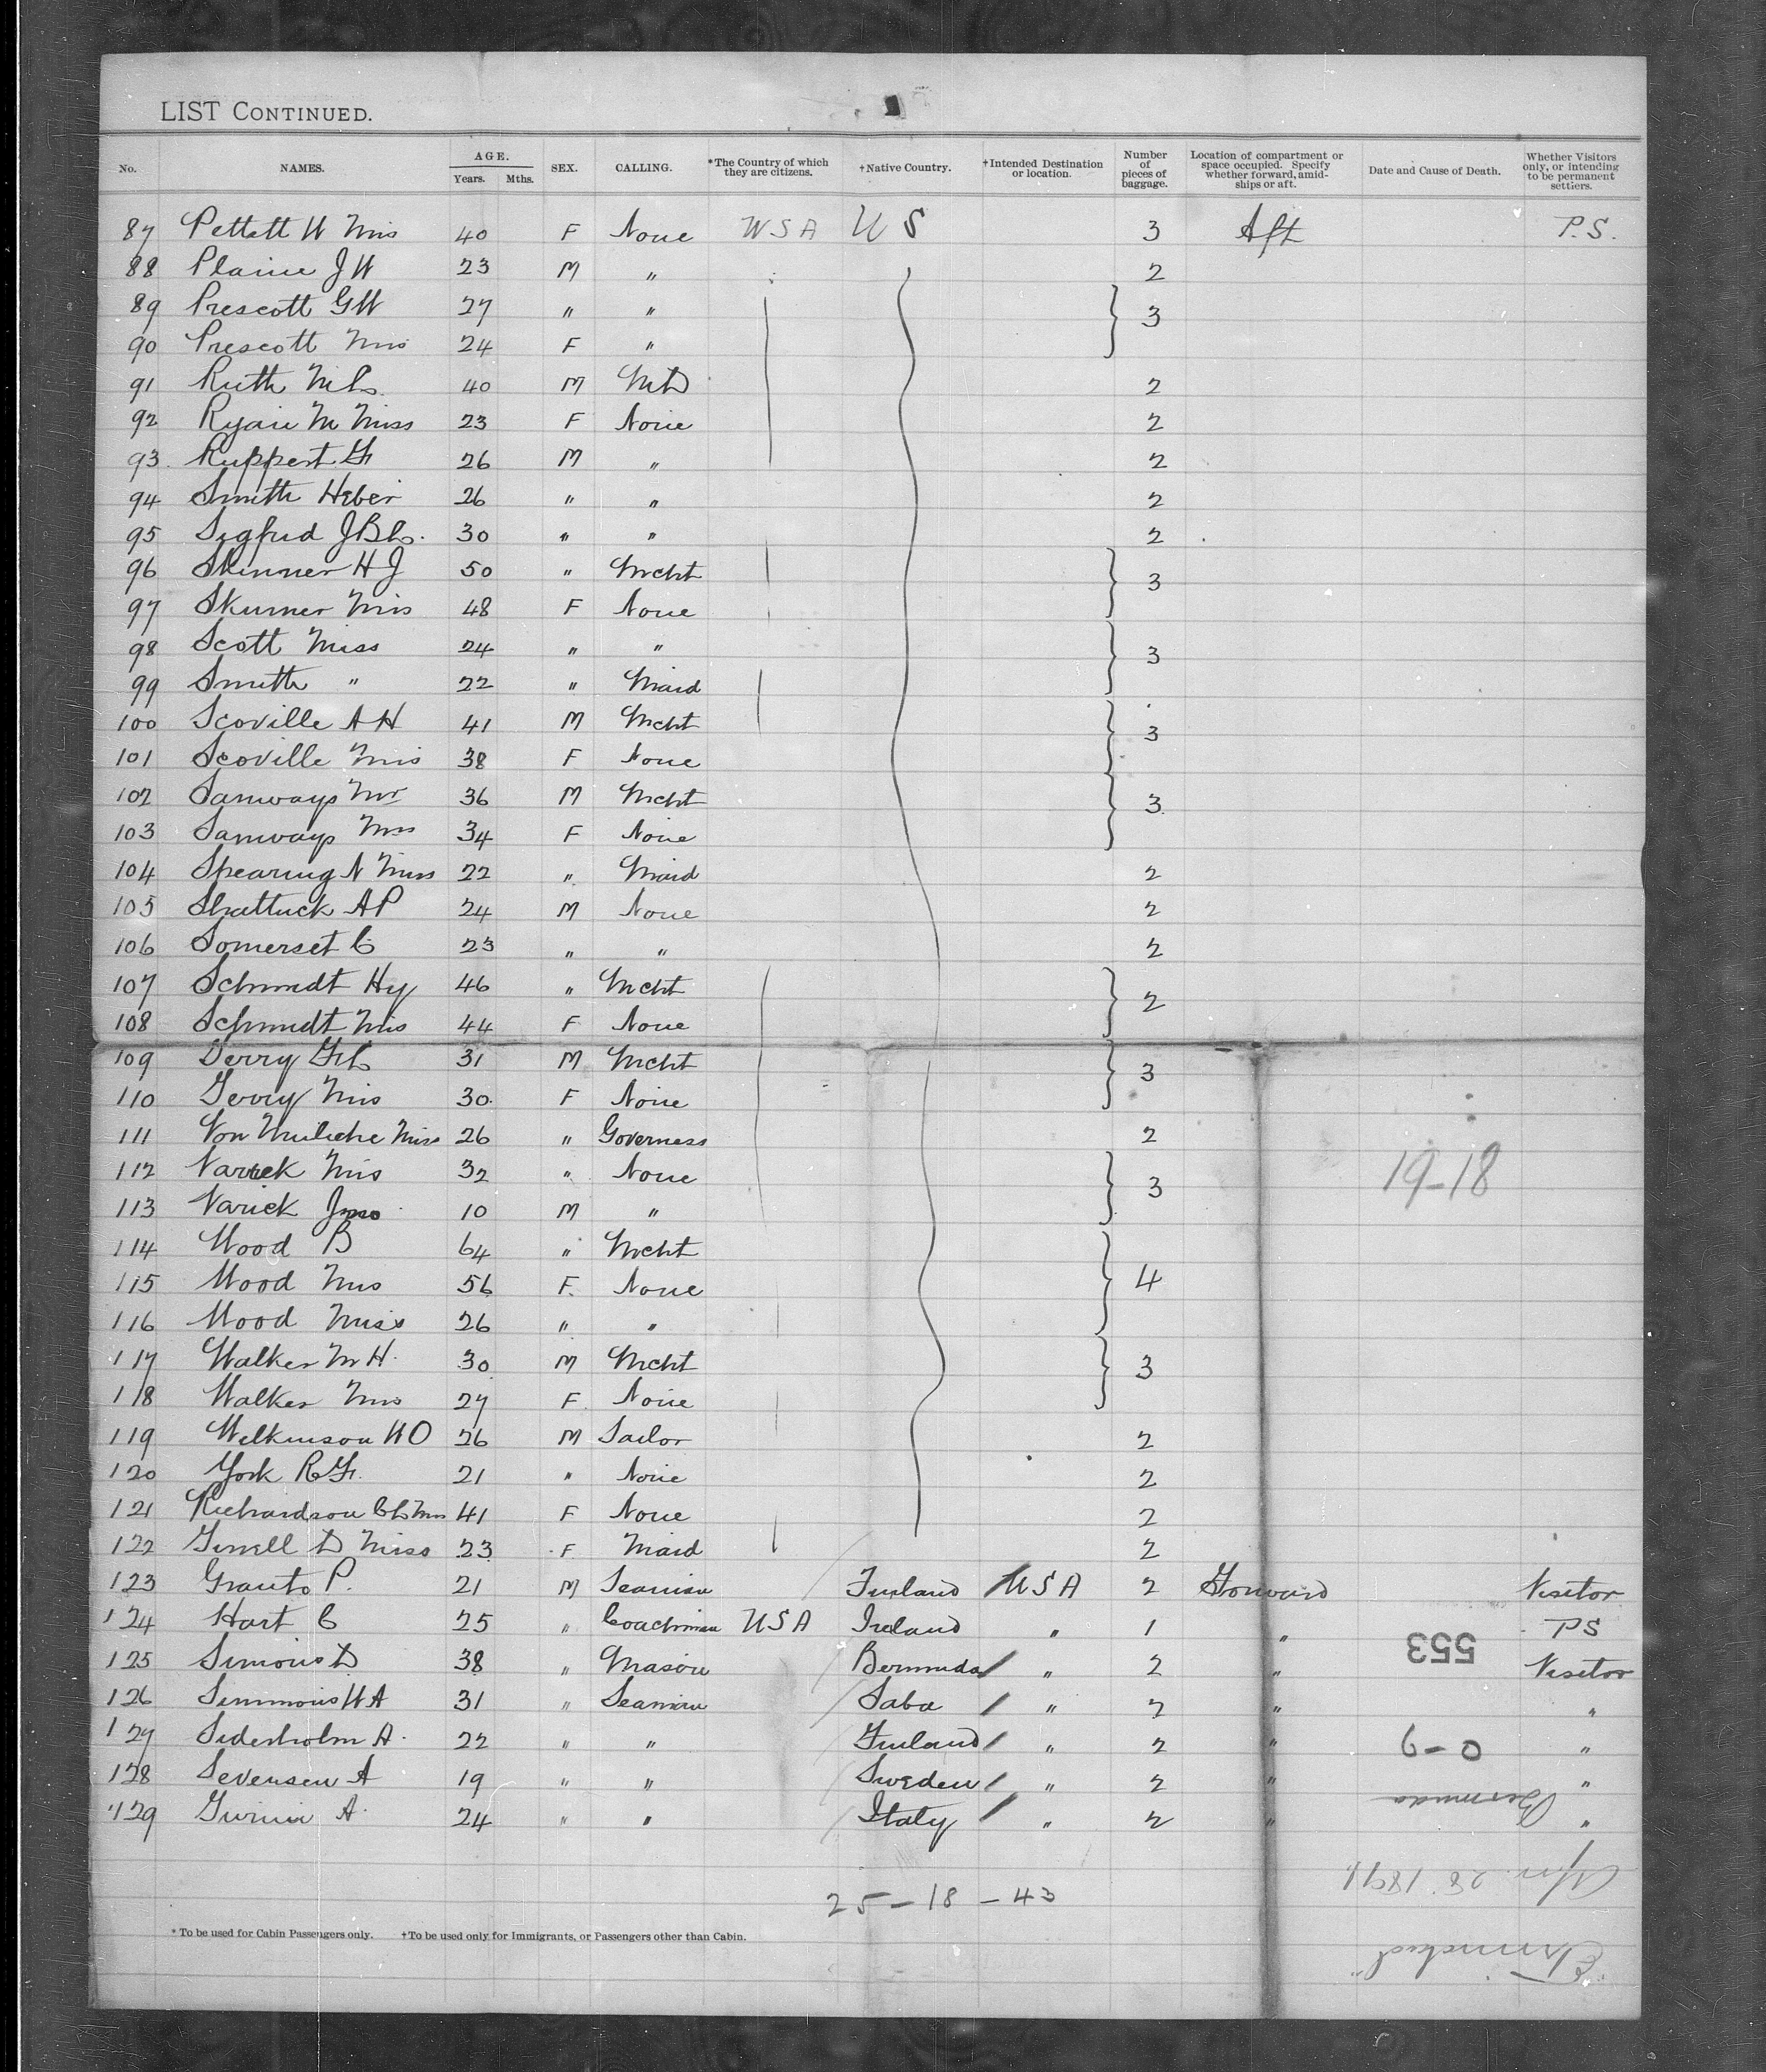 LIST CONTINUED.
No. NAMES. AGE. Years. Mths. SEX. CALLING. *The Country of which they are citizens. †Native Country. †Intended Destination or location. Number of pieces of baggage. Location of compartment or space occupied. Specify whether forward, amidships or aft. Date and Cause of Death. Whether Visitors only, or intending to be permanent settlers.
87 Pettett W Mrs 40 F None USA US 3 Aft P.S.
88 Plaine J W 23 M " 2
89 Prescott G W 27 " " 3
90 Prescott Mrs 24 F "
91 Ruth M C 40 M MD 2
92 Ryan M Miss 23 F None 2
93 Ruppert G 26 M " 2
94 Smith Heber 26 " " 2
95 Sigfrid J B C. 30 " " 2
96 Skinner H J 50 " Mcht 3
97 Skinner Mrs 48 F None
98 Scott Miss 24 " " 3
99 Smith " 22 " Maid
100 Scoville A H 41 M Mcht 3
101 Scoville Mrs 38 F None
102 Samways Mr 36 M Mcht 3
103 Samways Mrs 34 F None
104 Spearing N Miss 22 " Maid 2
105 Shattuck A P 24 M None 2
106 Somerset C 23 " " 2
107 Schmidt Hy 46 " Mcht 2
108 Schmidt Mrs 44 F None
109 Terry 31 M Mcht 3
110 Terry Mrs 30 F None
111 Von Miss 26 " Governess 2
112 Varick Mrs 32 " None 3
113 Varick Jno 10 M "
19-18
114 Wood B 64 " Mcht 4
115 Wood Mrs 56 F. None
116 Wood Miss 26 " "
117 Walker M H. 30 M Mcht 3
118 Walker Mrs 27 F. None
119 Wilkinson W O 26 M Sailor 2
120 York R G. 21 " None 2
121 Richardson C C Mrs 41 F None 2
122 D Miss 23 F Maid 2
123 P. 21 M Seaman Finland USA 2 Forward Visitor
124 Hart C 25 " Coachman USA Ireland " 1 " PS
553
125 Simons D 38 " Mason Bermuda " 2 " Visitor
126 Simmons W A 31 " Seaman Saba " 2 " "
127 Sederholm A. 22 " " Finland " 2 " "
0-9
128 Sevensen A 19 " " Sweden " 2 " "
Bermuda
129 A. 24 " " Italy " 2 " "
25-18-43
* To be used for Cabin Passengers only. †To be used only for Immigrants, or Passengers other than Cabin.
"Trinidad"